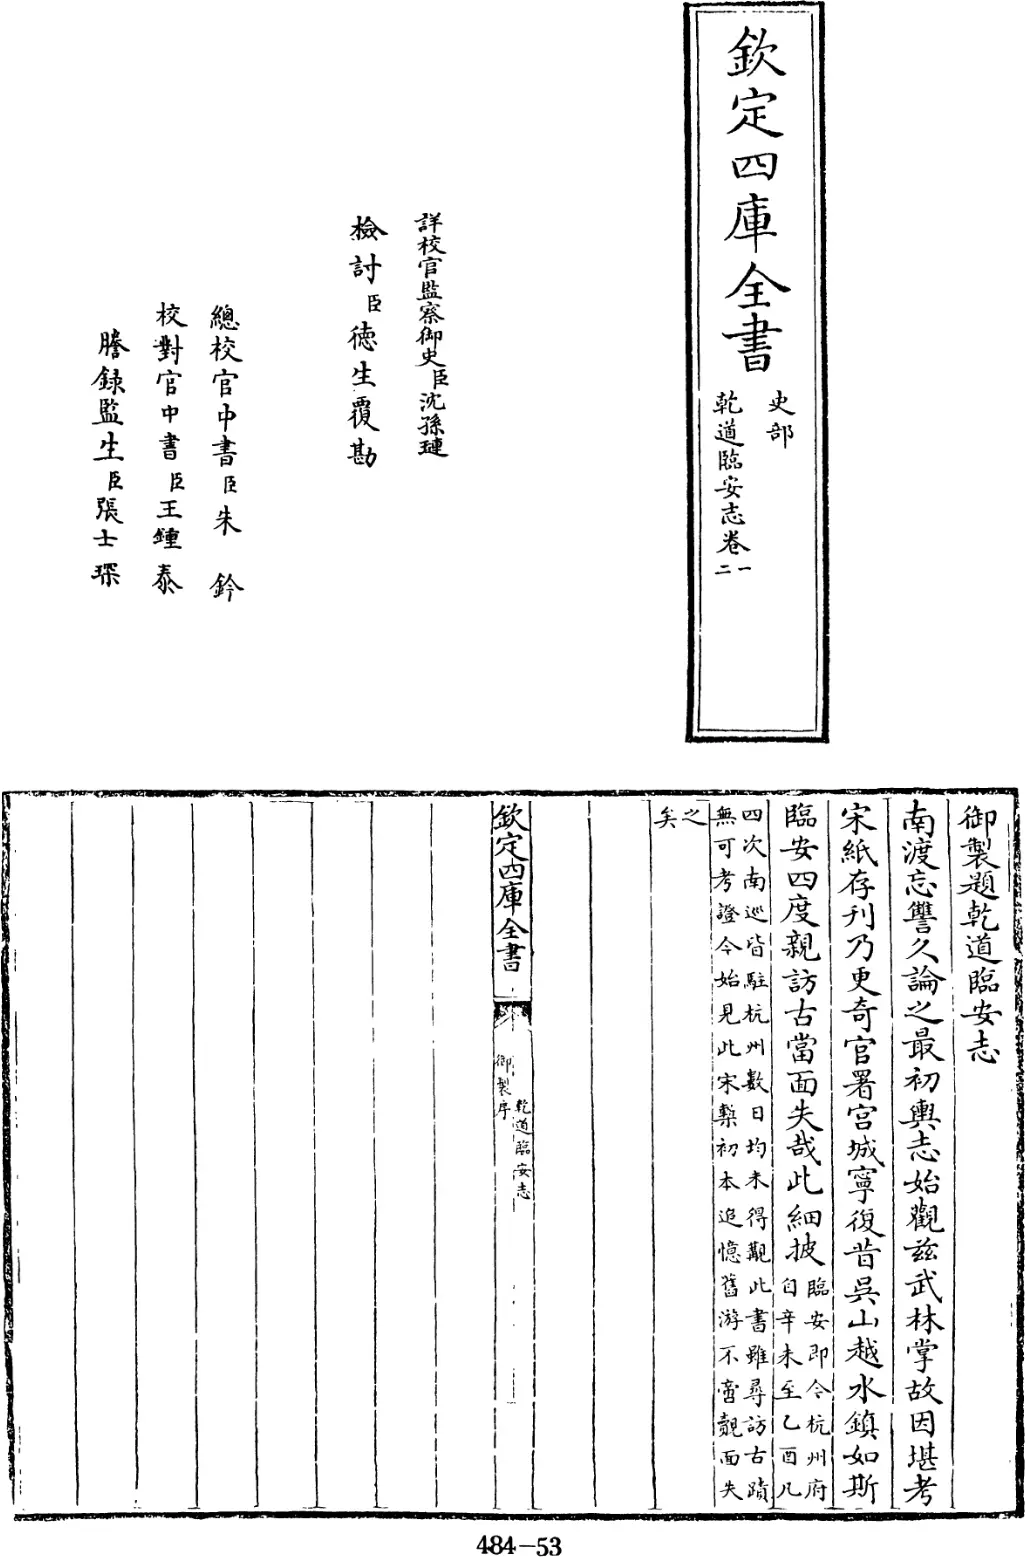 欽定四庫全書
史部
乾道臨安志卷一二
詳校官監察御史臣沈孫璉
檢討臣德生覆勘
總校官中書臣朱鈐
校對官中書臣王鍾泰
謄錄監生臣張士琛
御製題乾道臨安志
南渡忘讐久論之最初輿志始觀兹武林掌故因堪考
宋紙存刋乃更奇官署宫城寧復昔吳山越水鎮如斯
臨安四度親訪古當面失哉此細披臨安即今杭州府自辛未至乙酉凡
四次南巡皆駐杭州數日均未得觀此書雖尋訪古蹟無可考證今始見此宋槧初本追憶舊游不啻覿面失
之矣
欽定四庫全書
乾道臨安志
御製序
484-53